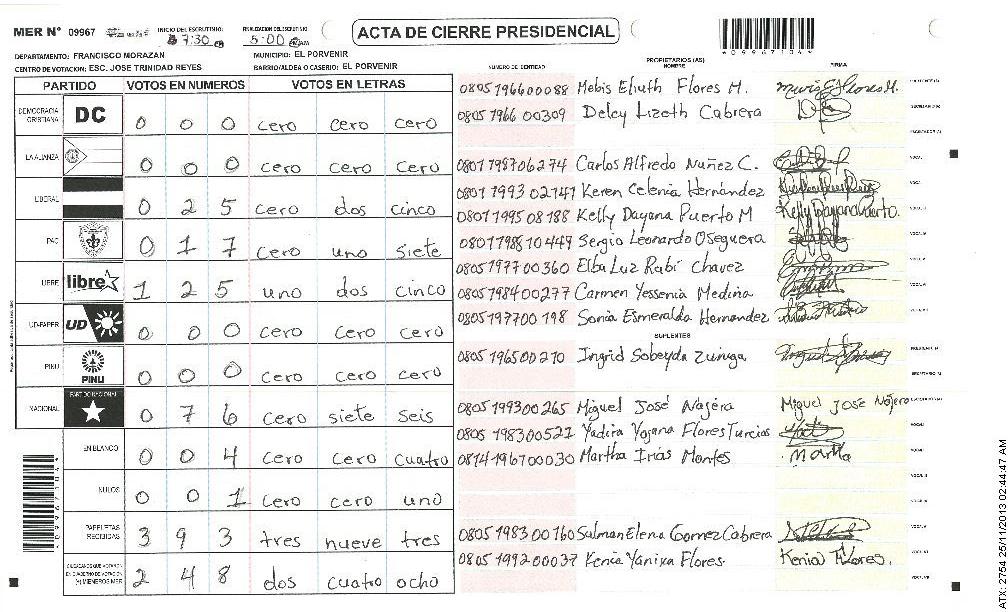 MER N° 09967 INICIO DEL ESCRUTINIO: 7:30 FINALIZACION DEL ESCRUTINIO: 5:00
ACTA DE CIERRE PRESIDENCIAL
* 0 9 9 6 7 1 0 4 *
DEPARTAMENTO: FRANCISCO MORAZAN MUNICIPIO: EL PORVENIR
CENTRO DE VOTACION: ESC. JOSE TRINIDAD REYES BARRIO/ALDEA O CASERIO: EL PORVENIR
PARTIDO VOTOS EN NUMEROS VOTOS EN LETRAS
DEMOCRACIA CRISTIANA DC 0 0 0 cero cero cero
LA ALIANZA 0 0 0 cero cero cero
LIBERAL 0 2 5 cero dos cinco
PAC 0 1 7 cero uno siete
LIBRE libre 1 2 5 uno dos cinco
UD-FAPER UD 0 0 0 cero cero cero
PINU PINU 0 0 0 cero cero cero
NACIONAL PARTIDO NACIONAL 0 7 6 cero siete seis
EN BLANCO 0 0 4 cero cero cuatro
NULOS 0 0 1 cero cero uno
PAPELETAS RECIBIDAS 3 9 3 tres nueve tres
CIUDADANOS QUE VOTARON EN CUADERNO DE VOTACION (+) MIEMBROS MER 2 4 8 dos cuatro ocho
NUMERO DE IDENTIDAD PROPIETARIOS (AS) NOMBRE FIRMA
0805196600088 Mebis Eliuth Flores M.
0805 1966 00309 Delcy Lizeth Cabrera
0801198706274 Carlos Alfredo Nuñez C.
0801 1993 02147 Keren Celenia Hernández
0801199508188 Kelly Dayana Puerto M Kelly Dayana Puerto.
0801198810449 Sergio Leonardo Oseguera
0805197700360 Elba Luz Rabí Chavez
0805198400277 Carmen Yessenia Medina
0805197700198 Sonia Esmeralda Hernandez
SUPLENTES
0805196500210 Ingrid Sobeyda Zuniga
0805199300265 Miguel José Najera Miguel José Nájera
0805 198300521 Yadira Yojana Flores Turcios
0814196700030 Martha Irías Montes Martha
0805 1983 00160 Salman Elena Gomez Cabrera
0805 199200037 Kenia Yanixa Flores Kenia Flores.
* 0 9 9 6 7 1 0 4 *
ATX: 2754 25/11/2013 02:44:47 AM